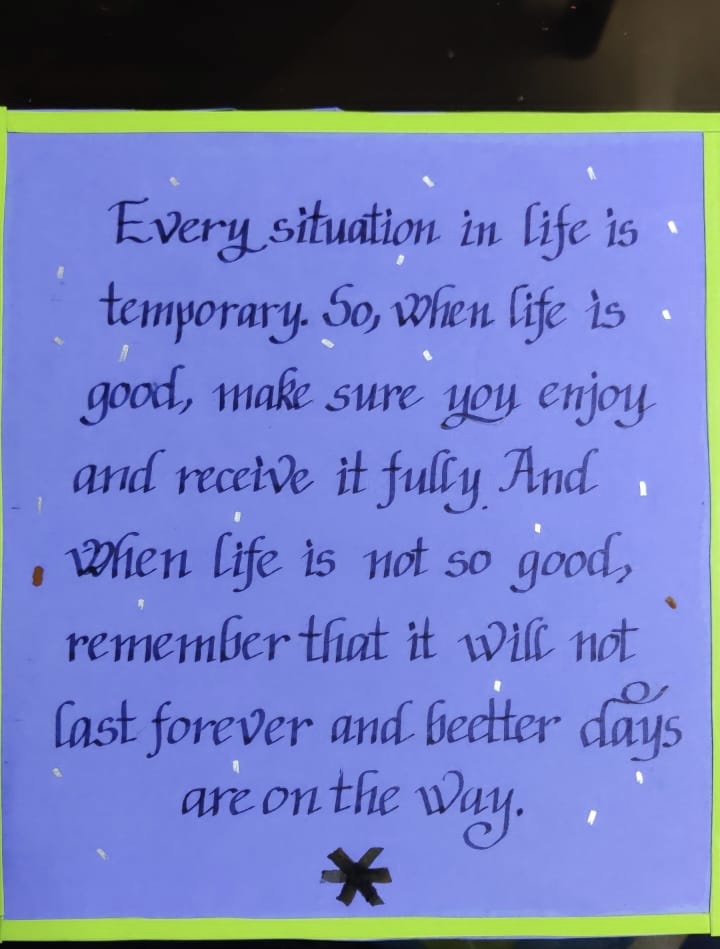 Every situation in life is
temporary. So, when life is
good, make sure you enjoy
and receive it fully. And
when life is not so good,
remember that it will not
last forever and beetter days
are on the way.